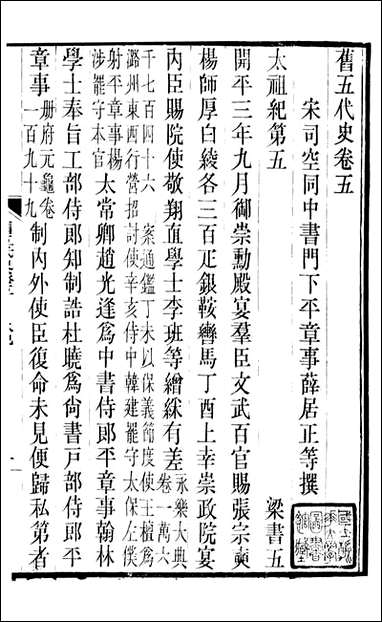 舊五代史卷五
宋司空同中書門下平章事薛居正等撰
太祖紀第五
梁書五
開平三年九月御崇勳殿宴羣臣文武百官賜張宗奭
楊師厚白綾各三百疋銀鞍轡馬丁酉上幸崇政院宴
內臣賜院使敬翔直學士李班等繒綵有差永樂大典卷一萬六
千七百四十六
案通鑑丁未以保義節度使王檀爲
潞州東西行營招討使辛亥侍中韓建罷守太保左僕
射平章事楊
涉罷守本官
太常卿趙光逢爲中書侍郎平章事翰林
學士奉旨工部侍郎知制誥杜曉爲尙書戶部侍郎平
章事冊府元龜卷
一百九十九
制內外使臣復命未見便歸私第者